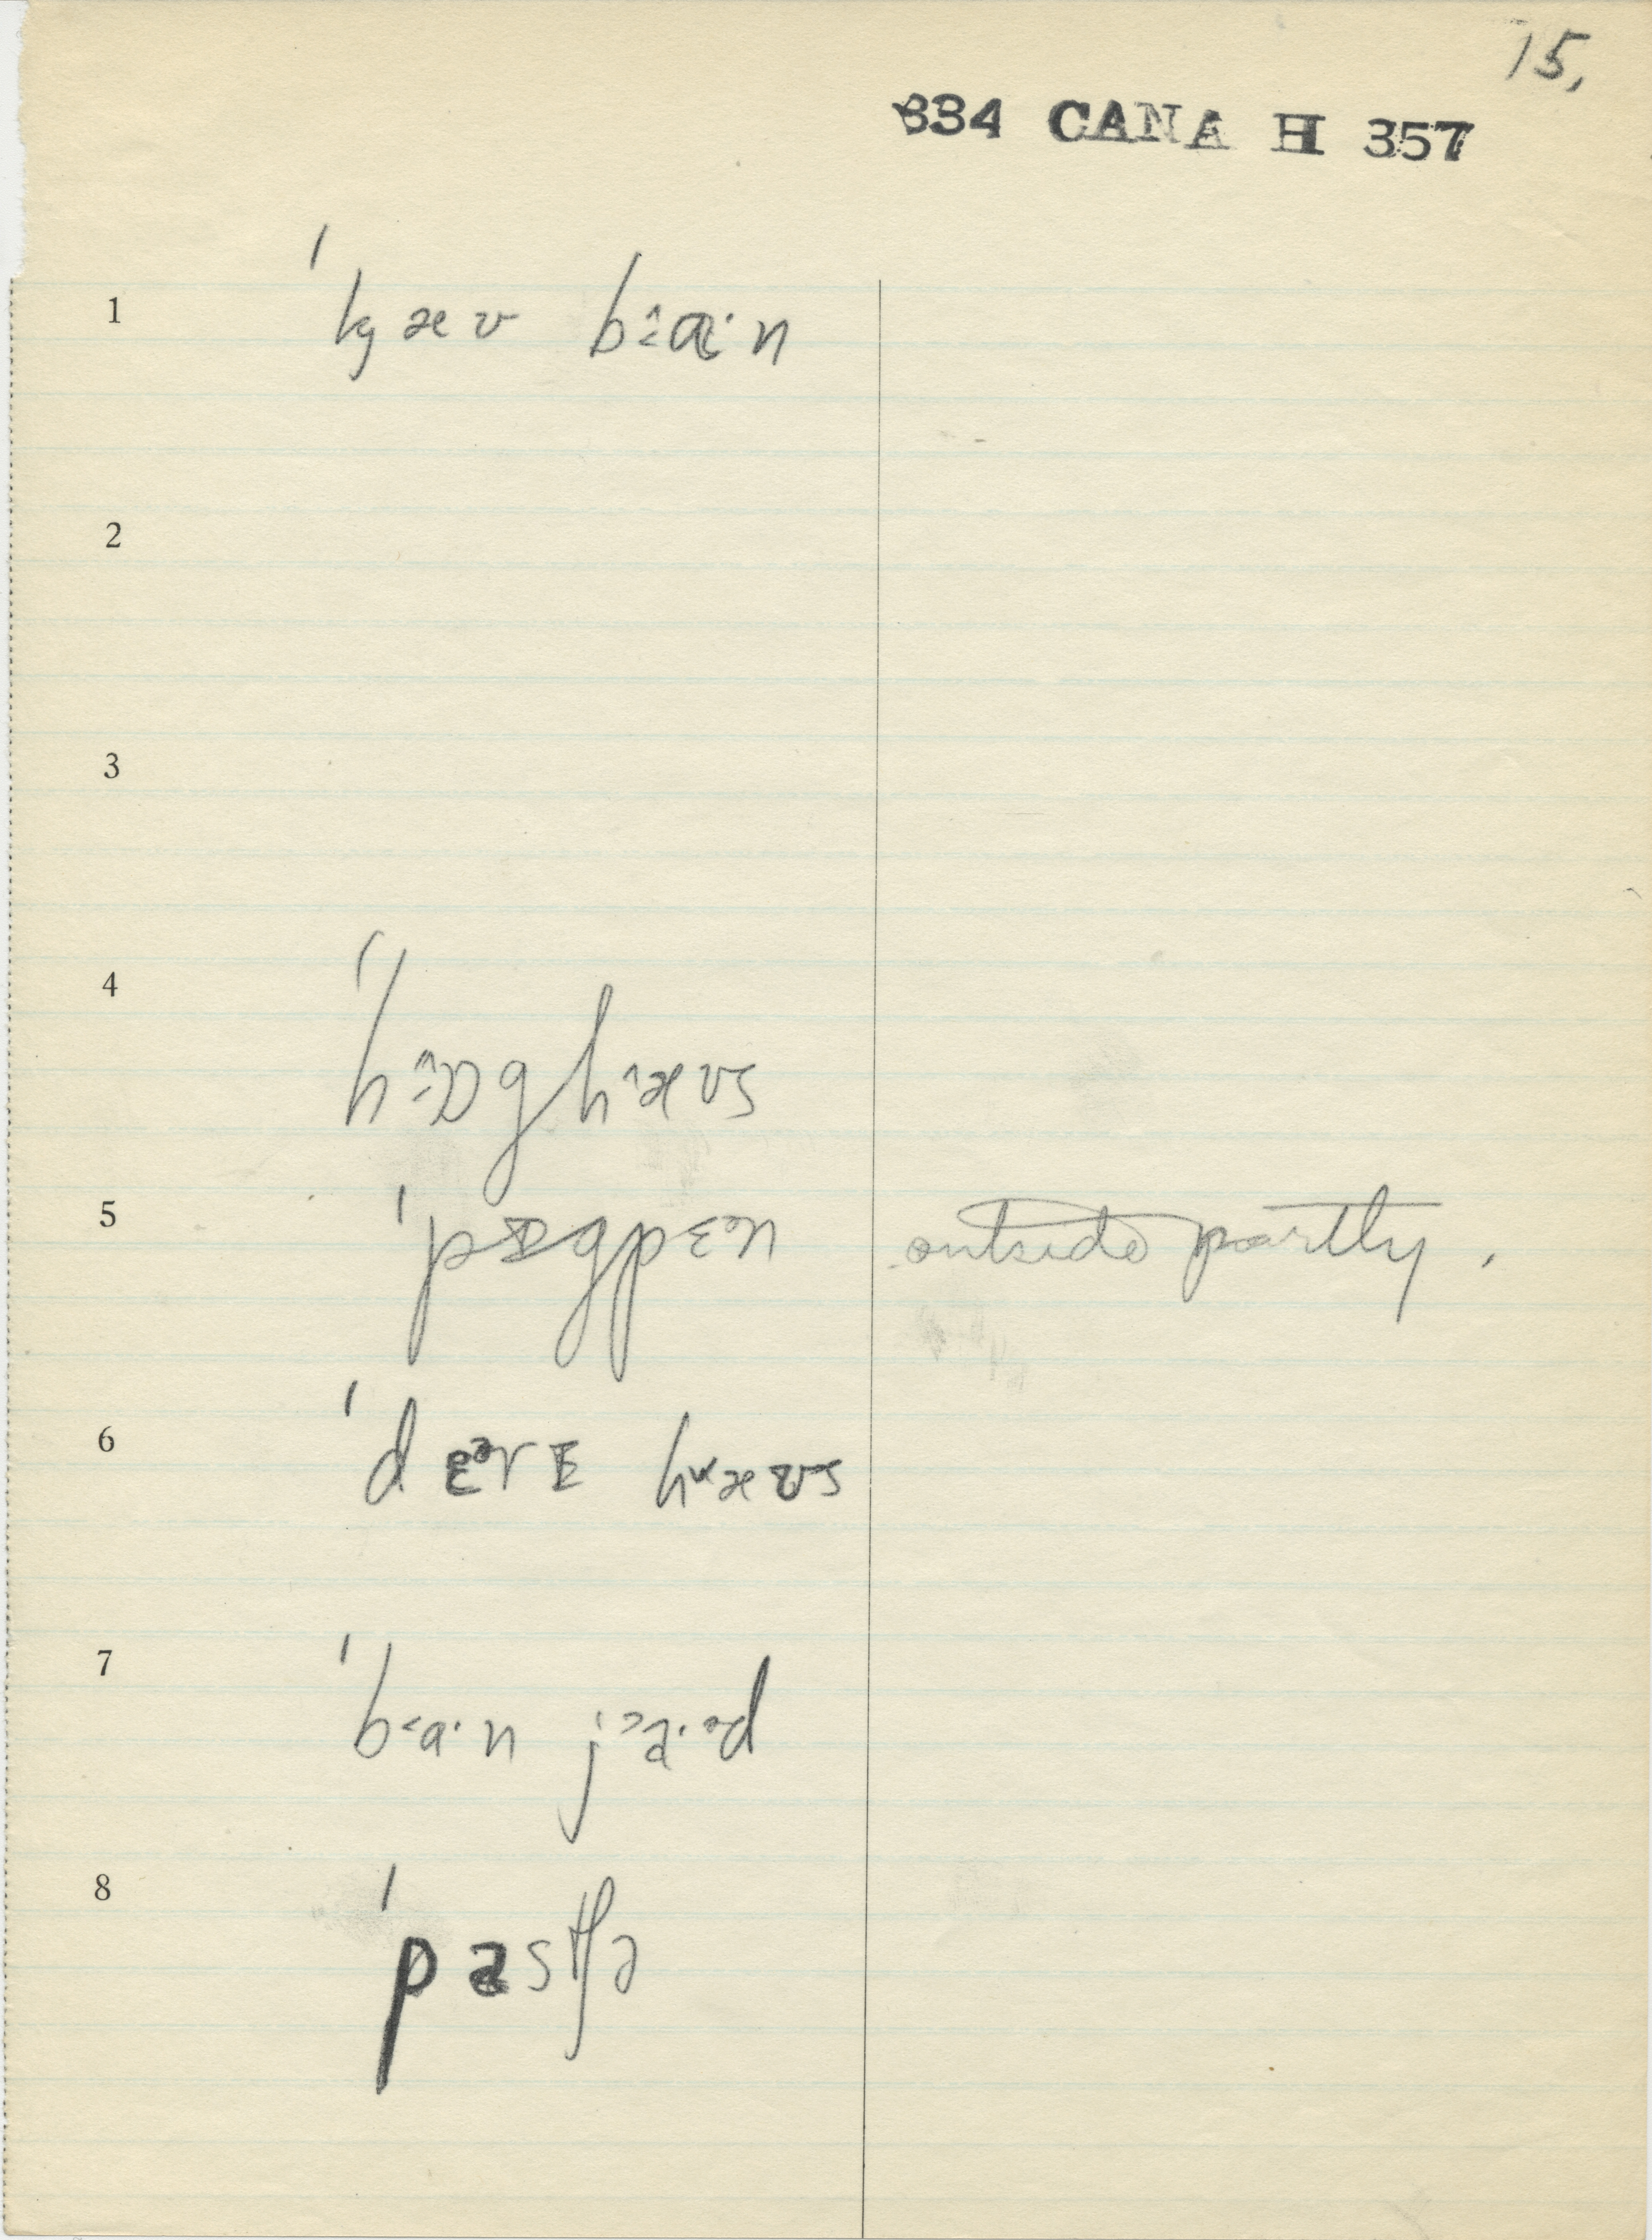 15,
334 CANA H 357
1 ˈkjæʊ b˂aˑn
2
3
4 ˈh ɒg h^æʊs
5 ˈpɪgpɛən outside partly.
6 ˈdɛərɪ h˅æʊs
7 ˈb˂aˑn j˃aˑəd
8 ˈpastʃə